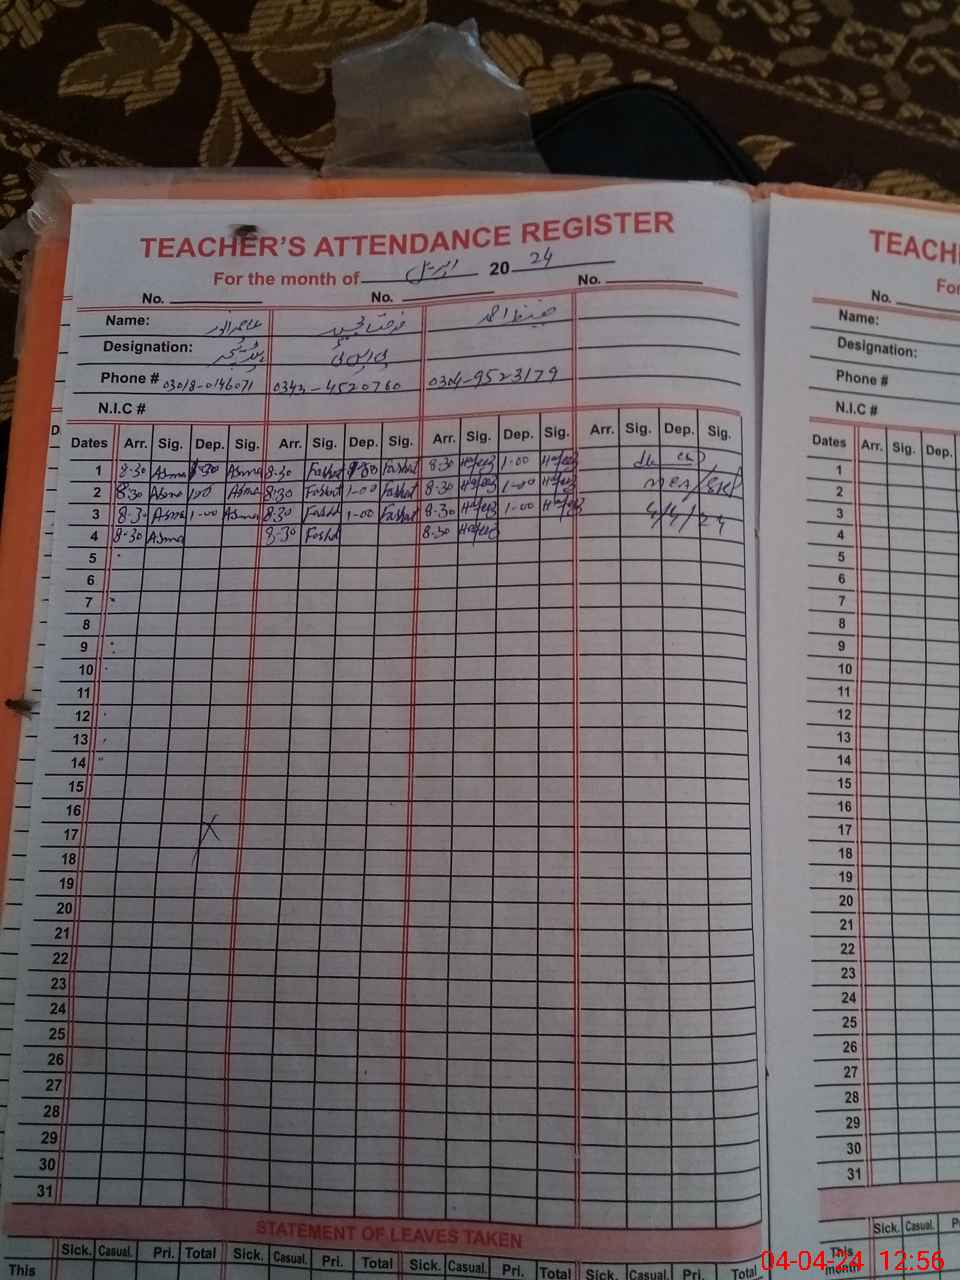 TEACHER'S ATTENDANCE REGISTER
For the month of اپریل 20 24
No. No. No.
Name:
Designation:
Phone # 03018-0146071 0343-4520760 0304-9523179
N.I.C #
Dates Arr. Sig. Dep. Sig. Arr. Sig. Dep. Sig. Arr. Sig. Dep. Sig. Arr. Sig. Dep. Sig.
1 8-30 Asma Asma 8-30 Fashat Fashat 8-30 Hafeez 1-00 Hafeez
2 8-30 Asma Asma 8-30 Fashat 1-00 Fashat 8-30 Hafeez 1-00 Hafeez
3 8-3 Asma 1-00 Asma 8-30 Fashat 1-00 Fashat 8-30 Hafeez 1-00 Hafeez 4/4/24
4 8-30 Asma 8-30 Fashat 8-30 Hafeez
5
6
7
8
9
10
11
12
13
14
15
16
17
18
19
20
21
22
23
24
25
26
27
28
29
30
31
STATEMENT OF LEAVES TAKEN
Sick. Casual. Pri. Total Sick. Casual. Pri. Total Sick. Casual. Pri. Total Sick. Casual. Pri. Total
This
TEACH
For
No.
Name:
Designation:
Phone #
N.I.C #
Dates Arr. Sig. Dep.
1
2
3
4
5
6
7
8
9
10
11
12
13
14
15
16
17
18
19
20
21
22
23
24
25
26
27
28
29
30
31
Sick. Casual. P
This
month
04-04-24 12:56